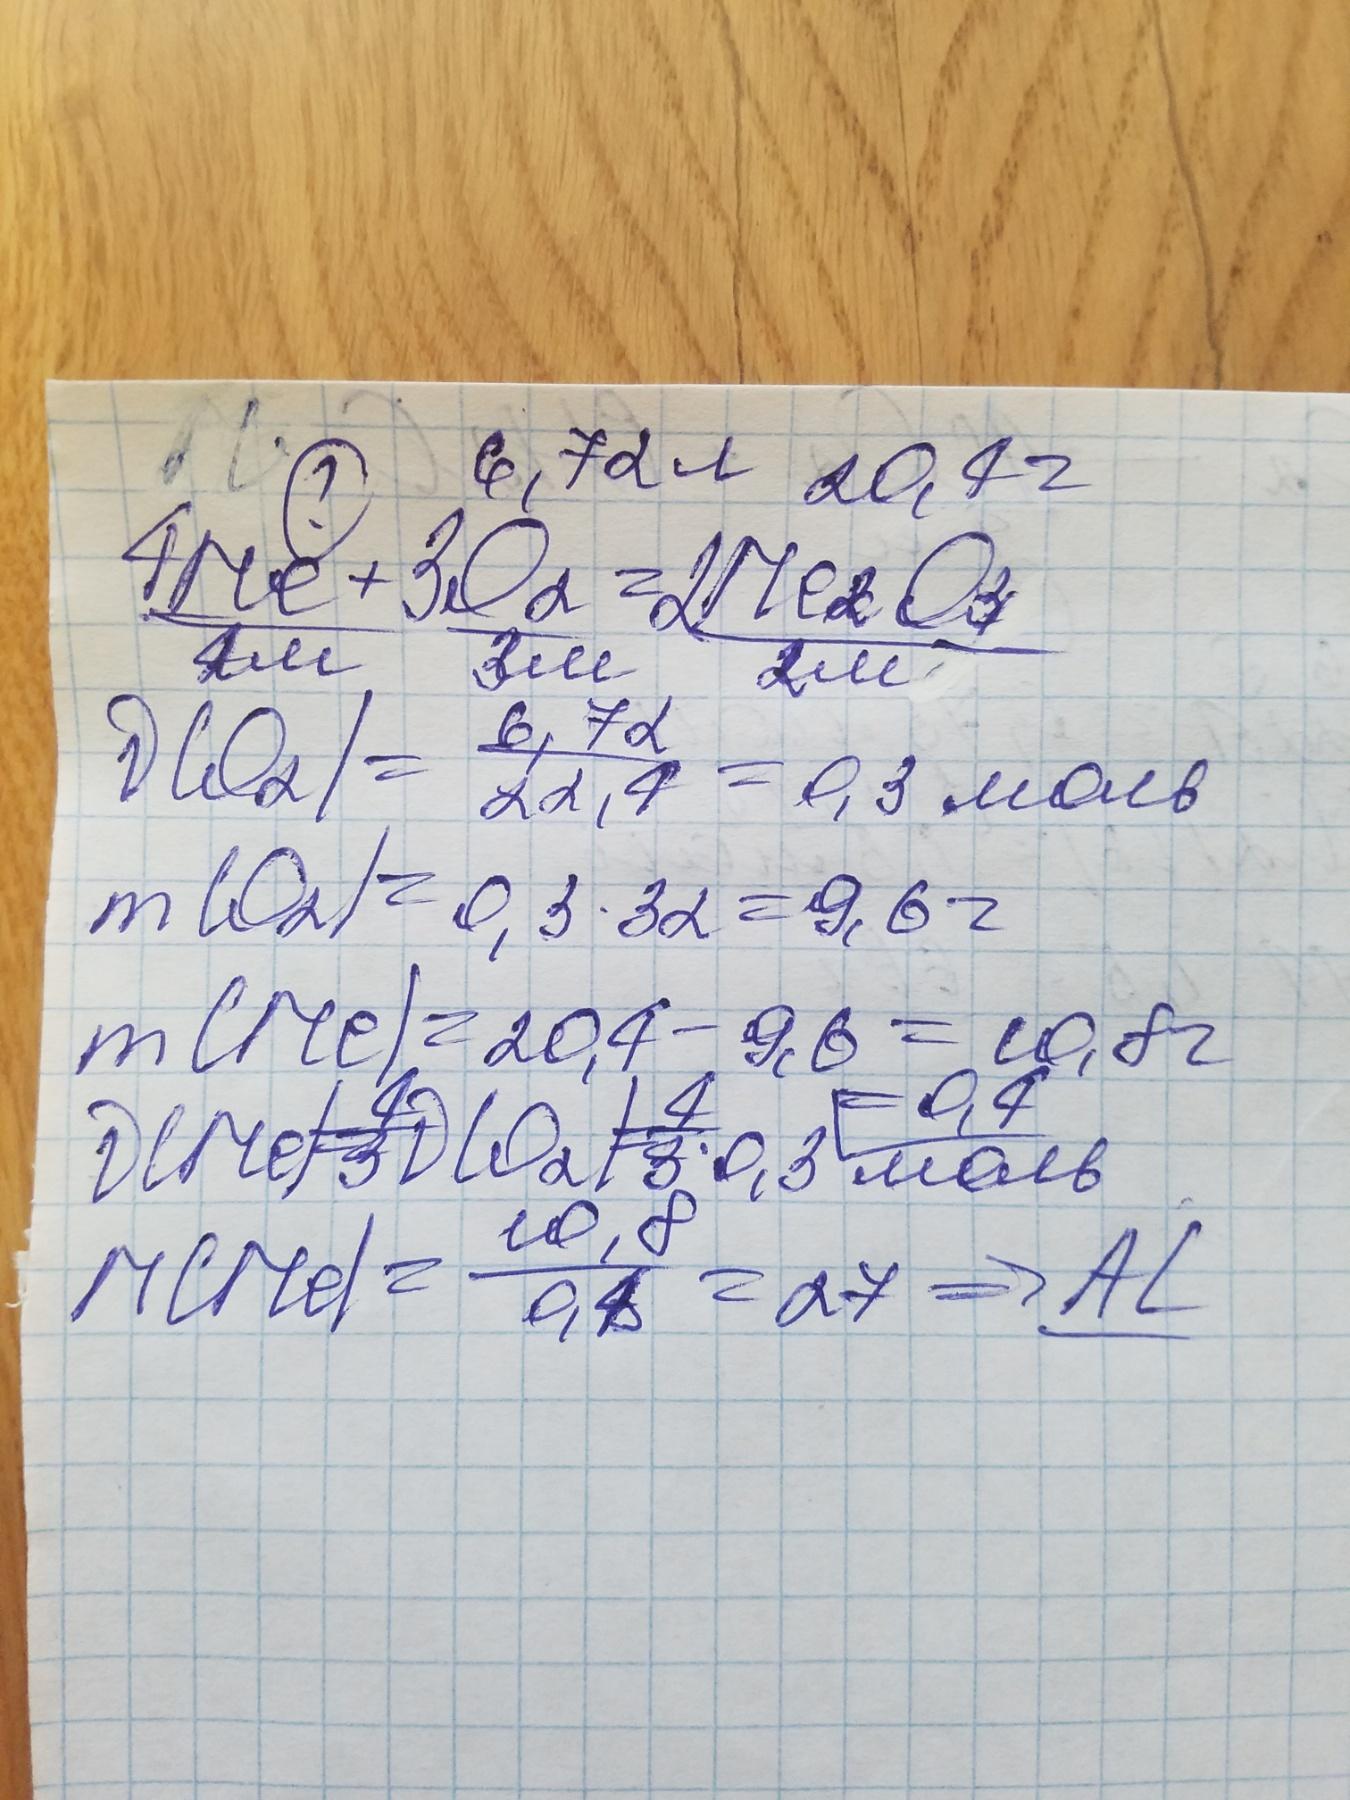 ? 6,72л 20,4г
4Me + 3O2 = 2Me2O3
4м 3м 2м
ν(O2) = 6,72/22,4 = 0,3 моль
m(O2) = 0,3·32 = 9,6г
m(Me) = 20,4 - 9,6 = 10,8г
ν(Me) = 4/3 ν(O2) = 4/3·0,3 = 0,4 моль
M(Me) = 10,8/0,4 = 27 => Al